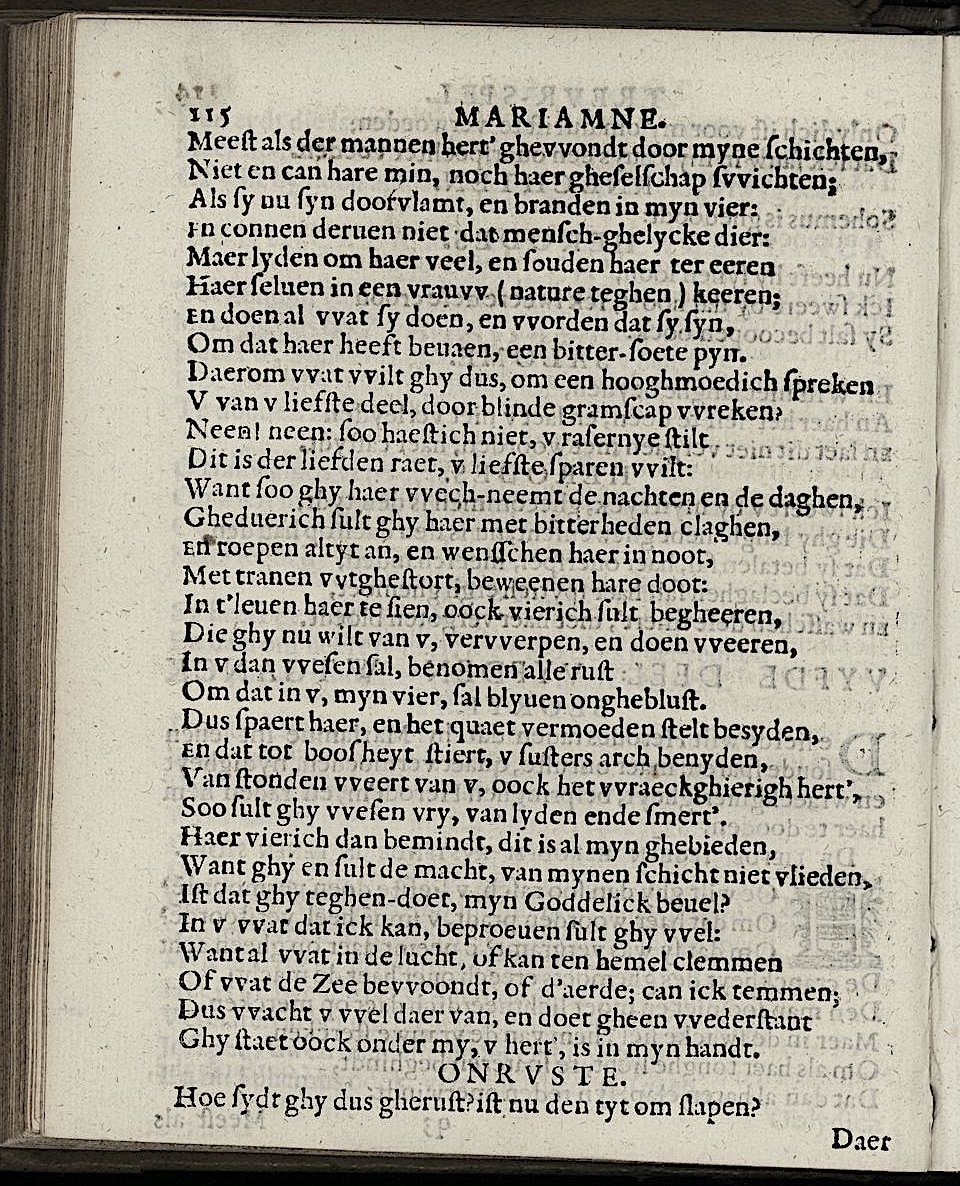 115 MARIAMNE.
Meeſt als der mannen hert' ghevvondt door myne ſchichten,
Niet en can hare min, noch haer gheſelſchap ſvvichten;
Als ſy nu ſyn doorvlamt, en branden in myn vier:
En connen deruen niet dat menſch-ghelycke dier:
Maer lyden om haer veel, en ſouden haer ter eeren
Haer ſeluen in een vrauvv (nature teghen) keeren;
En doen al vvat ſy doen, en vvorden dat ſy ſyn,
Om dat haer heeft beuaen, een bitter-ſoete pyn.
Daerom vvat vvilt ghy dus, om een hooghmoedich ſpreken
V van v liefſte deel, door blinde gramſcap vvreken?
Neen! neen: ſoo haeſtich niet, v raſernye ſtilt
Dit is der liefden raet, v liefſte ſparen vvilt:
Want ſoo ghy haer vvech-neemt de nachten en de daghen,
Gheduerich ſult ghy haer met bitterheden claghen,
En roepen altyt an, en wenſſchen haer in noot,
Met tranen vvtgheſtort, beweenen hare doot:
In t'leuen haer te ſien, oock vierich ſult begheeren,
Die ghy nu wilt van v, vervverpen, en doen vveeren,
In v dan vveſen ſal, benomen alle ruſt
Om dat in v, myn vier, ſal blyuen ongheblust.
Dus ſpaert haer, en het quaet vermoeden ſtelt besyden,
En dat tot boosheyt ſtiert, v ſuſters arch benyden,
Van ſtonden vveert van v, oock het vvraeckghierigh hert',
Soo ſult ghy vveſen vry, van lyden ende ſmert'.
Haer vierich dan bemindt, dit is al myn ghebieden,
Want ghy en ſult de macht, van mynen ſchicht niet vlieden,
Iſt dat ghy teghen-doet, myn Goddelick beuel?
In v vvat dat ick kan, beproeuen ſult ghy vvel:
Want al vvat in de lucht, of kan ten hemel clemmen
Of vvat de Zee bevvoondt, of d'aerde; can ick temmen;
Dus vvacht v vvel daer van, en doet gheen vvederſtant
Ghy ſtaet oock onder my, v hert', is in myn handt.
ONRVSTE.
Hoe ſydt ghy dus gheruſt? iſt nu den tyt om ſlapen?
Daer